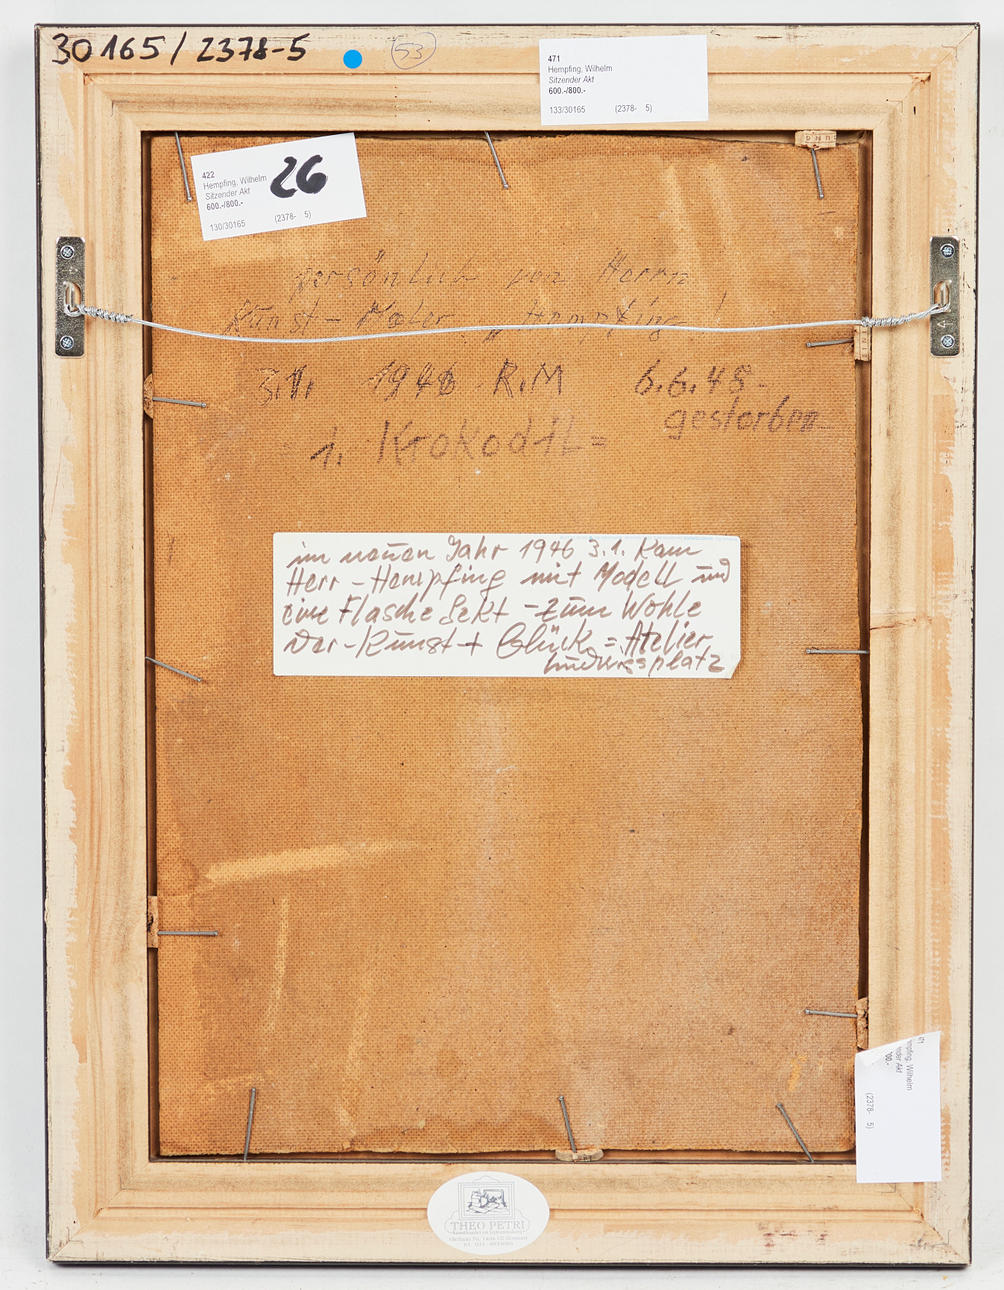 30165/2378-5
53
471
Hempfing, Wilhelm
Sitzender Akt
600.-/800.-
133/30165 (2378- 5)
422
Hempfing, Wilhelm
Sitzender Akt
600.-/800.-
130/30165 (2378- 5)
26
persönlich von Herrn
Kunst-Maler Hempfing!
3.1. 1946 R.M 6.6.48-
gestorben
1. Krokodil=
im neuen Jahr 1946 3.1. Kam
Herr-Hempfing mit Modell und
eine Flasche Sekt - zum Wohle
der-Kunst + Glück = Atelier
(2378- 5)
THEO PETRI